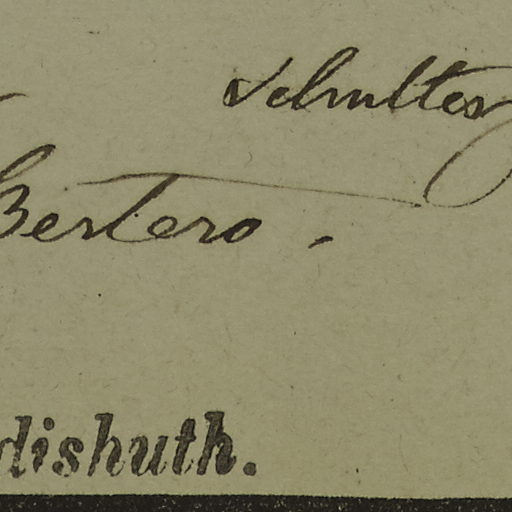 Schultes
Bertero.
dishuth.